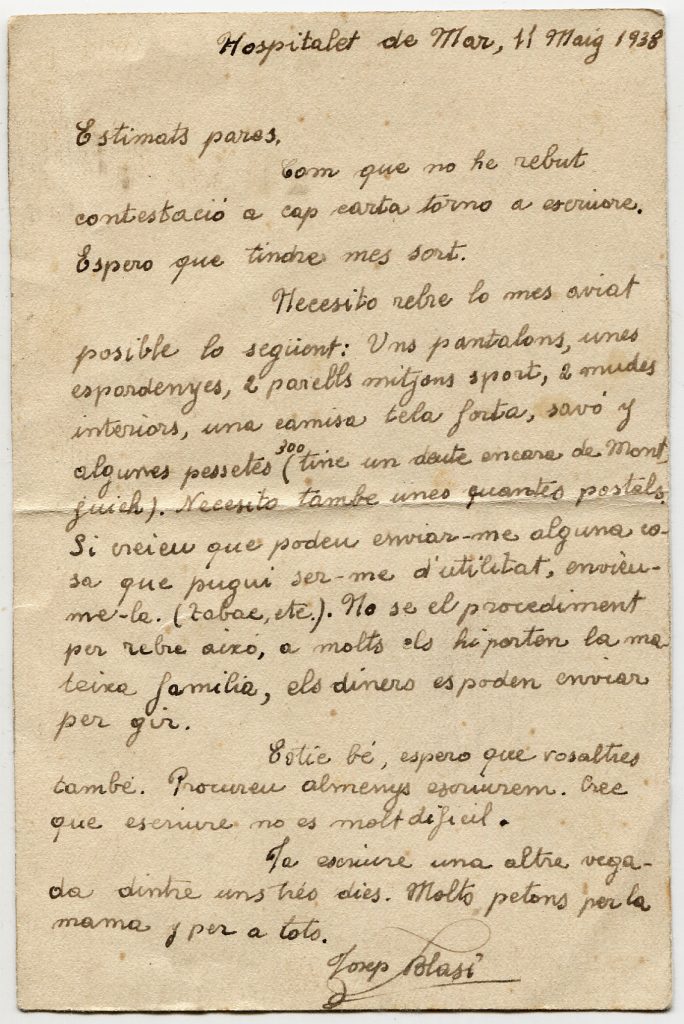 Hospitalet de Mar, 11 Maig 1938
Estimats pares.
Com que no he rebut
contestació a cap carta torno a escriure.
Espero que tindre mes sort.
Necesito rebre lo mes aviat
posible lo següent: Uns pantalons, unes
espardenyes, 2 parells mitjons sport, 2 mudes
interiors, una camisa tela forta, savó y
algunes pessetes 300 (tinc un deute encara de Mont
juich). Necesito tambe unes quantes postals.
Si creieu que podeu enviar-me alguna co-
sa que pugui ser-me d'utilitat, envieu-
me-la. (tabac, etc.). No se el procediment
per rebre aixó, a molts els hi porten la ma-
teixa familia, els diners es poden enviar
per gir.
Estic bé, espero que vosaltres
també. Procureu almenys escriurem. Crec
que escriure no es molt dificil.
Ja escriure una altre vega-
da dintre uns trés dies. Molts petons per la
mama y per a tots.
Josep Blasi